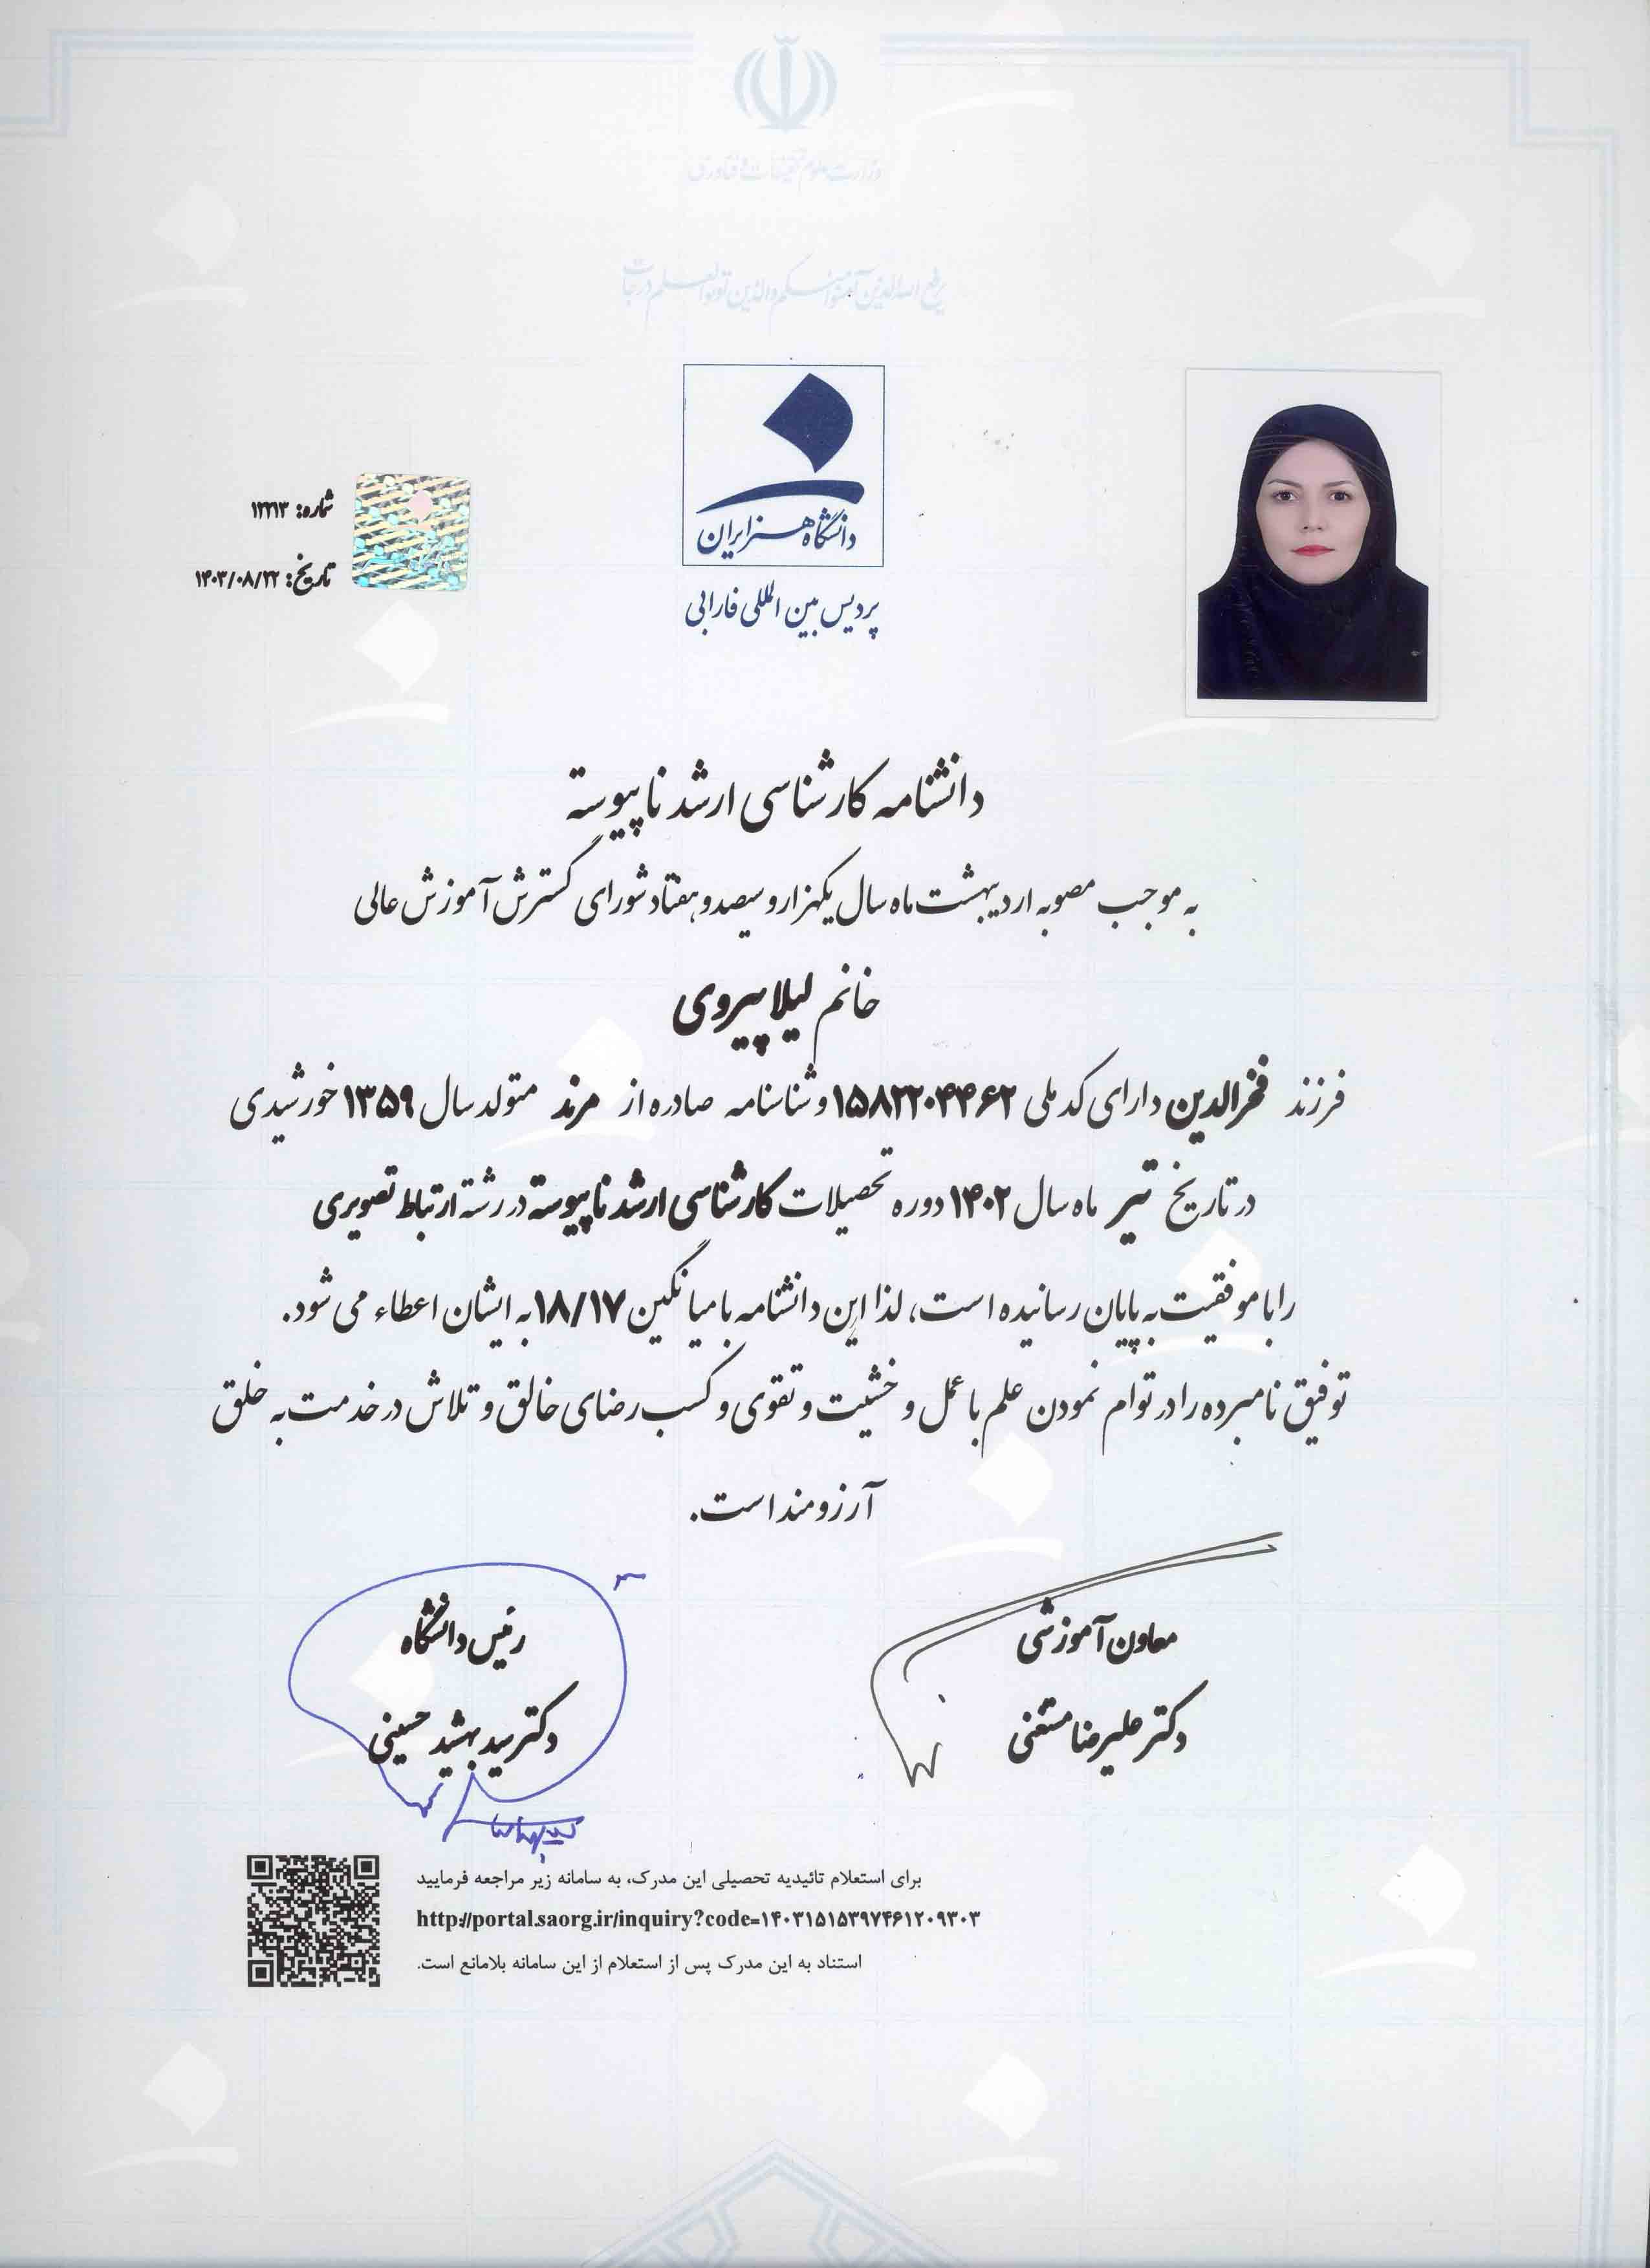 وزارت علوم تحقیقات و فناوری
یرفع الله الذین آمنوا منکم والذین اوتوا العلم درجات
دانشگاه هنر ایران
پردیس بین المللی فارابی
شماره: ۱۲۲۱۳
تاریخ: ۱۴۰۳/۰۸/۲۲
دانشنامه کارشناسی ارشد ناپیوسته
به موجب مصوبه اردیبهشت ماه سال یکهزار و سیصد و هفتاد شورای گسترش آموزش عالی
خانم لیلا پیروی
فرزند فخرالدین دارای کد ملی ۱۵۸۲۲۰۴۴۶۲ و شناسنامه صادره از مرند متولد سال ۱۳۵۹ خورشیدی
در تاریخ تیر ماه سال ۱۴۰۲ دوره تحصیلات کارشناسی ارشد ناپیوسته در رشته ارتباط تصویری
را با موفقیت به پایان رسانیده است، لذا این دانشنامه با میانگین ۱۸/۱۷ به ایشان اعطاء می شود.
توفیق نامبرده را در توام نمودن علم با عمل و خشیت و تقوی و کسب رضای خالق و تلاش در خدمت به خلق
آرزومند است.
معاون آموزشی
دکتر علیرضا مستغنی
رئیس دانشگاه
دکتر سید بهشید حسینی
برای استعلام تائیدیه تحصیلی این مدرک، به سامانه زیر مراجعه فرمایید
http://portal.saorg.ir/inquiry?code=۱۴۰۳۱۵۱۵۳۹۷۴۶۱۲۰۹۳۰۳
استناد به این مدرک پس از استعلام از این سامانه بلامانع است.